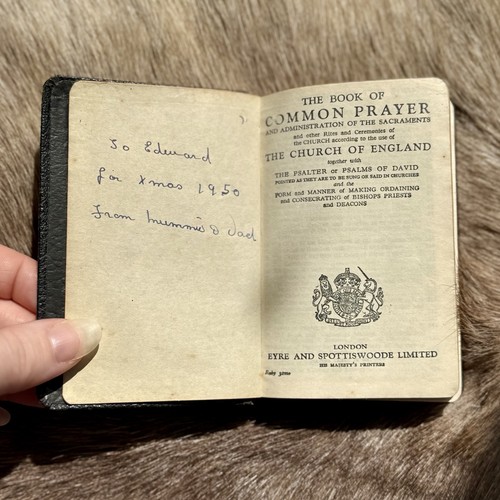 To Edward
for Xmas 1950
From Mummie & Dad
THE BOOK OF
COMMON PRAYER
AND ADMINISTRATION OF THE SACRAMENTS
and other Rites and Ceremonies of
the CHURCH according to the use of
THE CHURCH OF ENGLAND
together with
THE PSALTER or PSALMS OF DAVID
POINTED AS THEY ARE TO BE SUNG OR SAID IN CHURCHES
and the
FORM and MANNER of MAKING ORDAINING
and CONSECRATING of BISHOPS PRIESTS
and DEACONS
LONDON
EYRE AND SPOTTISWOODE LIMITED
HIS MAJESTY'S PRINTERS
Ruby 32mo